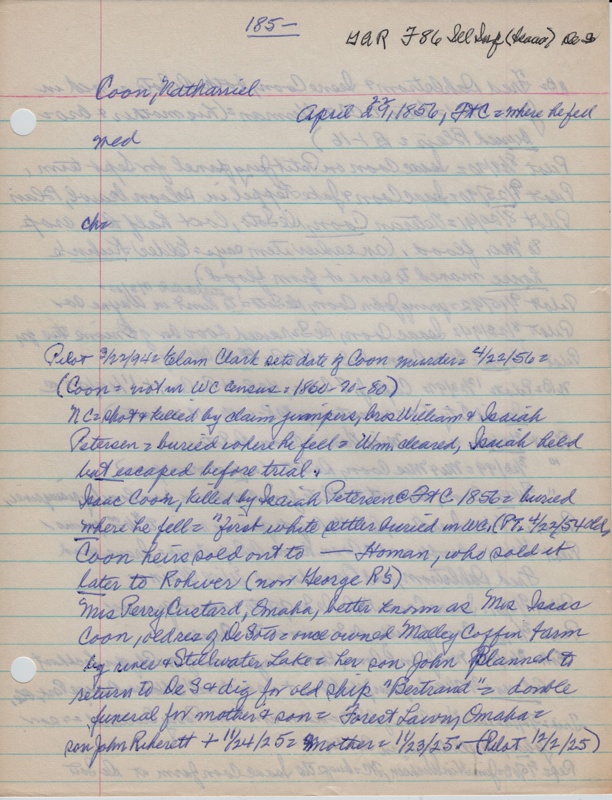 185-
GAR F86 Sel Imp (Isaac) De S
Coon, Nathaniel
April 29, 22 1856, Ft C = where he fell
med
ch=
Pilot 3/22/94 = Elam Clark sets date of Coon murder = 4/22/56 =
(Coon = not in WC Census = 1860-70-80)
NC = shot & killed by claim jumpers, bros William & Isaiah
Petersen = buried where he fell = Wm. cleared, Isaiah held
but escaped before trial.
Isaac Coon, killed by Isaiah Petersen @ Ft C 1856 = buried
where he fell = "first white settler buried in WC, (Pt. 4/22/54
Coon heirs sold out to — Homan, who sold it
later to Rohwer (now George R's)
Mrs Perry Custard, Omaha, better known as Mrs Isaac
Coon, old res of De Soto = once owned Malley Coffin farm
by river & Stillwater Lake = her son John planned to
return to De S & dig for old ship "Bertrand" = double
funeral for mother & son = Forest Lawn, Omaha =
son John + 11/24/25 = Mother = 11/23/25 - (Pilot 12/2/25)